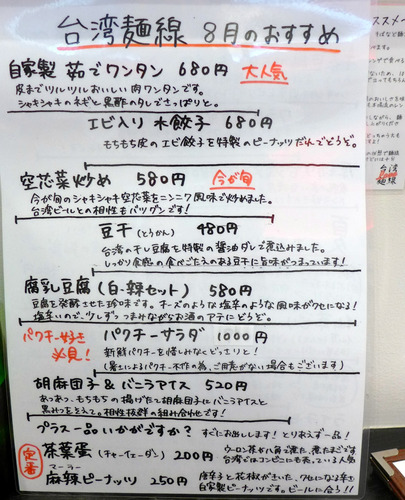 台湾麺線 8月のおすすめ
自家製 茹でワンタン 680円 大人気
皮までツルツルおいしい肉ワンタンです。
シャキシャキのネギと黒酢のタレでさっぱりと。
エビ入り 水餃子 680円
もちもち皮のエビ餃子を特製のピーナッツだれでどうぞ。
空芯菜炒め 580円 今が旬
今が旬のシャキシャキ空芯菜をニンニク風味で炒めました。
台湾ビールとの相性もバツグンです!
豆干(とうかん) 480円
台湾の干し豆腐を特製の醤油ダレで煮込みました。
しっかり食感の食べごたえのある豆干に旨味がつまっています!
腐乳豆腐(白・辣セット) 580円
豆腐を発酵させた珍味です。チーズのような塩辛のような風味がクセになる!
塩辛いので、少しずつつまみながらお酒のアテにどうぞ。
パクチー好き必見!
パクチーサラダ 1000円
新鮮パクチーを惜しみなくどっさりと!
(暑さによるパクチー不作の為、ご用意がない場合もございます)
胡麻団子&バニラアイス 520円
あつあつ、もちもちの揚げたて胡麻団子にバニラアイスと
黒みつをそえての相性抜群の組み合わせです!
プラス一品いかがですか? すぐにお出しします! とりあえず一品!
定番
茶葉蛋(チャーイェーダン) 200円
ウーロン茶が八角で煮た、煮たまごです
台湾ではコンビニにも売っている人気
マーラー
麻辣ピーナッツ 250円
唐辛子と花椒がきいた、クセになる辛さ
自家製ピーナッツです。ビールに合う!!
台湾
麺線